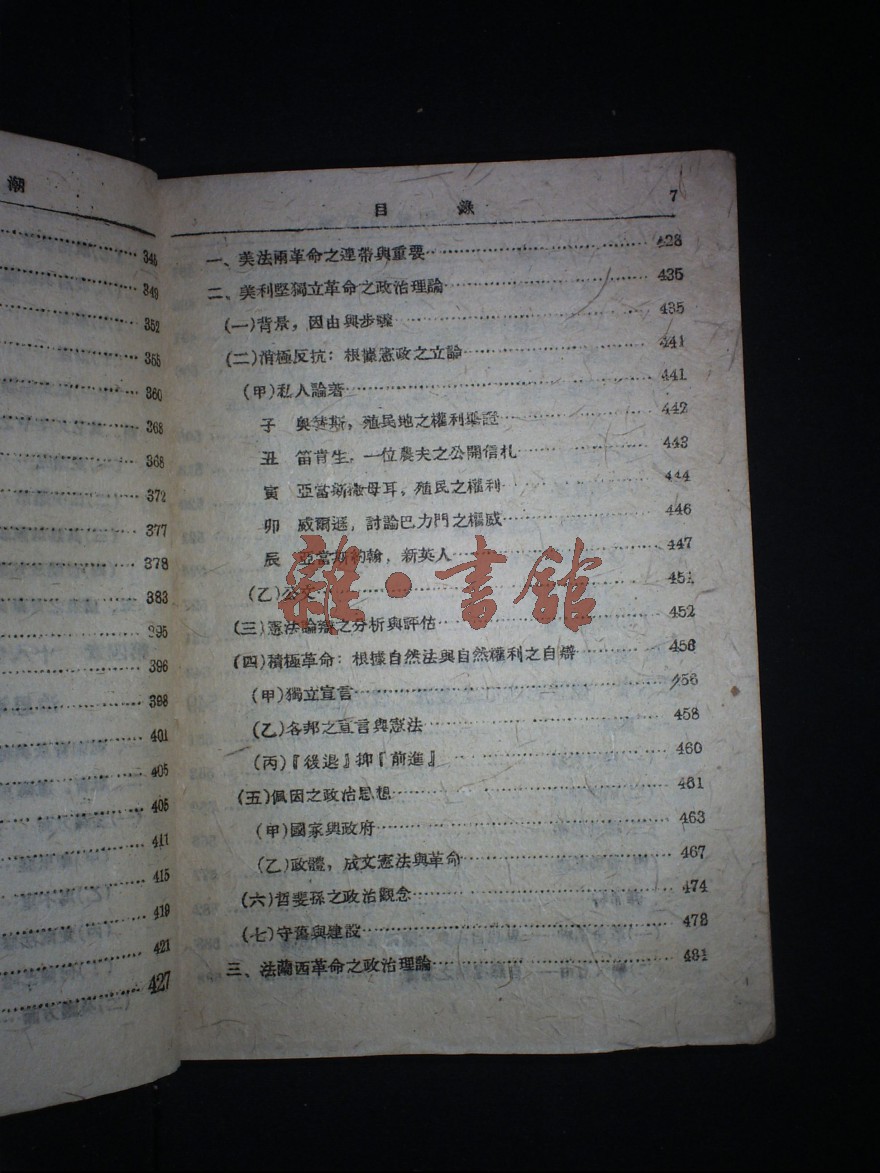 潮
345
349
352
355
360
368
368
372
377
378
383
395
396
398
401
405
405
411
415
419
421
427
目 錄 7
一、美法兩革命之連帶與重要 428
二、美利堅獨立革命之政治理論 435
(一)背景，因由與步驟 435
(二)消極反抗：根據憲政之立論 441
(甲)私人論著 441
子 奧替斯，殖民地之權利 442
丑 笛肯生，一位農夫之公開信札 443
寅 亞當斯撒母耳，殖民之權利 444
卯 威爾遜，討論巴力門之權威 446
辰 亞當斯約翰，新英人 447
(乙)公文 451
(三)憲法論辯之分析與評估 452
(四)積極革命：根據自然法與自然權利之自辯 456
(甲)獨立宣言 456
(乙)各邦之宣言與憲法 458
(丙)『後退』抑『前進』 460
(五)佩因之政治思想 461
(甲)國家與政府 463
(乙)政體，成文憲法與革命 467
(六)哲斐孫之政治觀念 474
(七)守舊與建設 478
三、法蘭西革命之政治理論 481
雜·書館